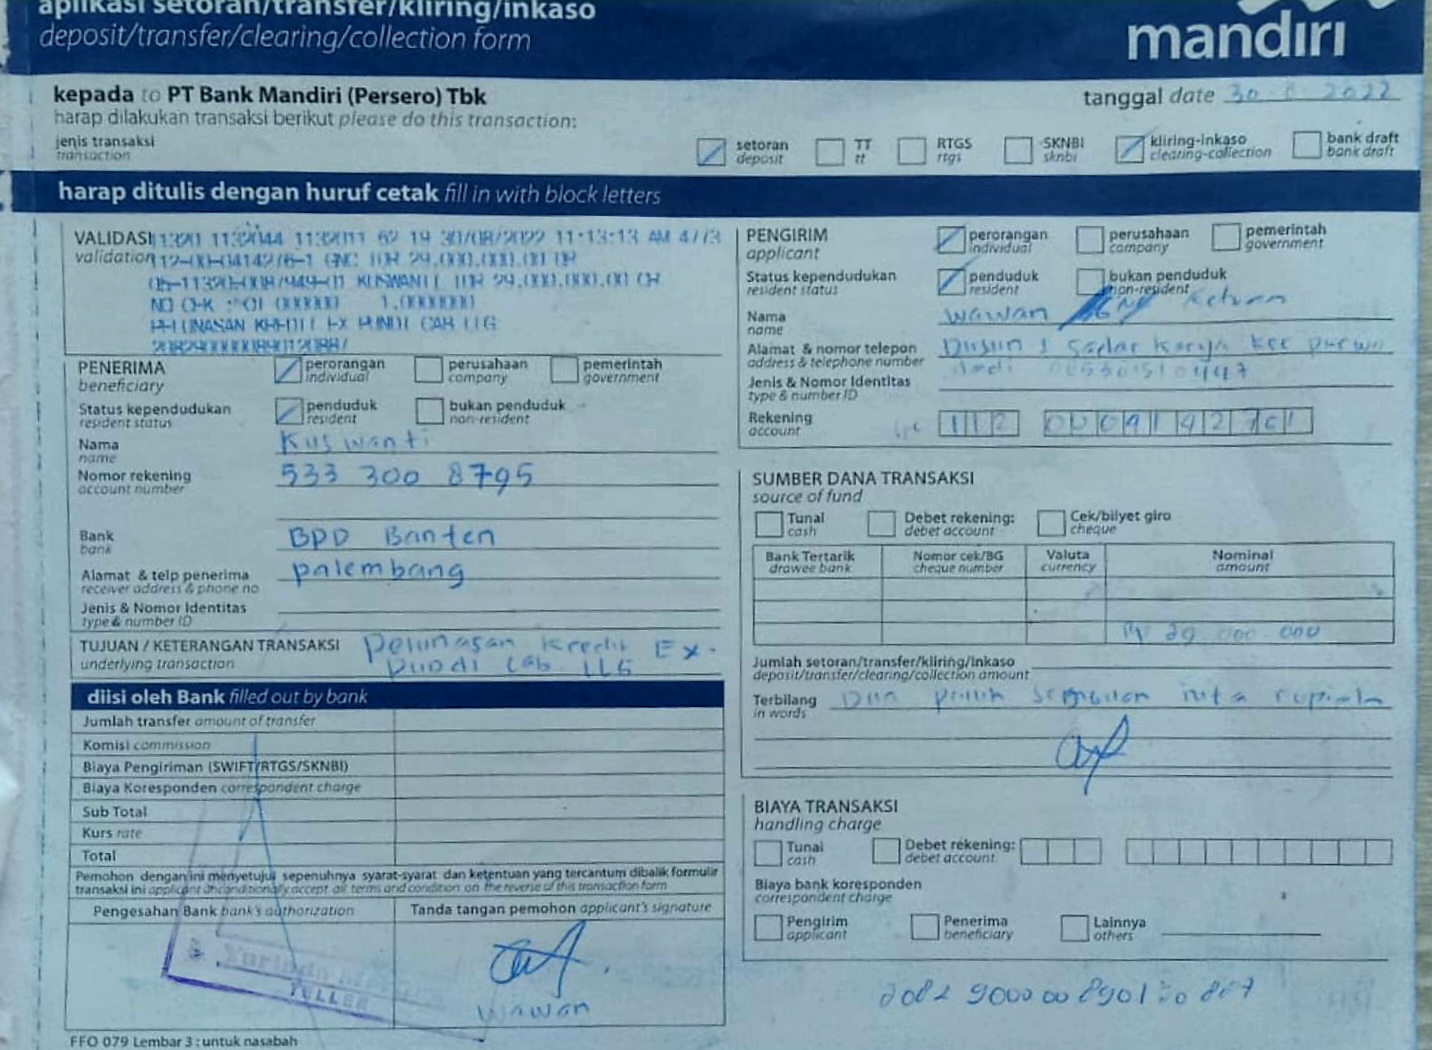 aplikasi setoran/transfer/kliring/inkaso
deposit/transfer/clearing/collection form
mandiri
kepada to PT Bank Mandiri (Persero) Tbk
harap dilakukan transaksi berikut please do this transaction:
tanggal date 30 2022
jenis transaksi
transaction
setoran
deposit
TT
tt
RTGS
rtgs
SKNBI
sknbi
kliring-inkaso
clearing-collection
bank draft
bank draft
harap ditulis dengan huruf cetak fill in with block letters
VALIDASI
validation
30/08/2022 11:13:13 AM
IDR 29,000,000.00 DR
KUSWANTI IDR 29,000,000.00 CR
PELUNASAN KREDIT EX PUNDI CAB LLG
PENERIMA
beneficiary
perorangan
individual
perusahaan
company
pemerintah
government
Status kependudukan
resident status
penduduk
resident
bukan penduduk
non-resident
Nama
name
Kuswanti
Nomor rekening
account number
533 300 8795
Bank
bank
BPD Banten
Alamat & telp penerima
receiver address & phone no
palembang
Jenis & Nomor Identitas
type & number ID
TUJUAN / KETERANGAN TRANSAKSI
underlying transaction
Pelunasan Kredit Ex.
Pundi Cab. LLG
diisi oleh Bank filled out by bank
Jumlah transfer amount of transfer
Komisi commission
Biaya Pengiriman (SWIFT/RTGS/SKNBI)
Biaya Koresponden correspondent charge
Sub Total
Kurs rate
Total
Pemohon dengan ini menyetujui sepenuhnya syarat-syarat dan ketentuan yang tercantum dibalik formulir
transaksi ini applicant unconditionally accept all terms and condition on the reverse of this transaction form
Pengesahan Bank bank's authorization
Tanda tangan pemohon applicant's signature
TELLER
wawan
FFO 079 Lembar 3 : untuk nasabah
PENGIRIM
applicant
perorangan
individual
perusahaan
company
pemerintah
government
Status kependudukan
resident status
penduduk
resident
bukan penduduk
non-resident
Nama
name
wawan
Alamat & nomor telepon
address & telephone number
Dusun
Jenis & Nomor Identitas
type & number ID
Rekening
account
112
SUMBER DANA TRANSAKSI
source of fund
Tunai
cash
Debet rekening:
debet account
Cek/bilyet giro
cheque
Bank Tertarik
drawee bank
Nomor cek/BG
cheque number
Valuta
currency
Nominal
amount
Rp 29.000.000
Jumlah setoran/transfer/kliring/inkaso
deposit/transfer/clearing/collection amount
Terbilang
in words
Dua puluh sembilan juta rupiah
BIAYA TRANSAKSI
handling charge
Tunai
cash
Debet rekening:
debet account
Biaya bank koresponden
correspondent charge
Pengirim
applicant
Penerima
beneficiary
Lainnya
others